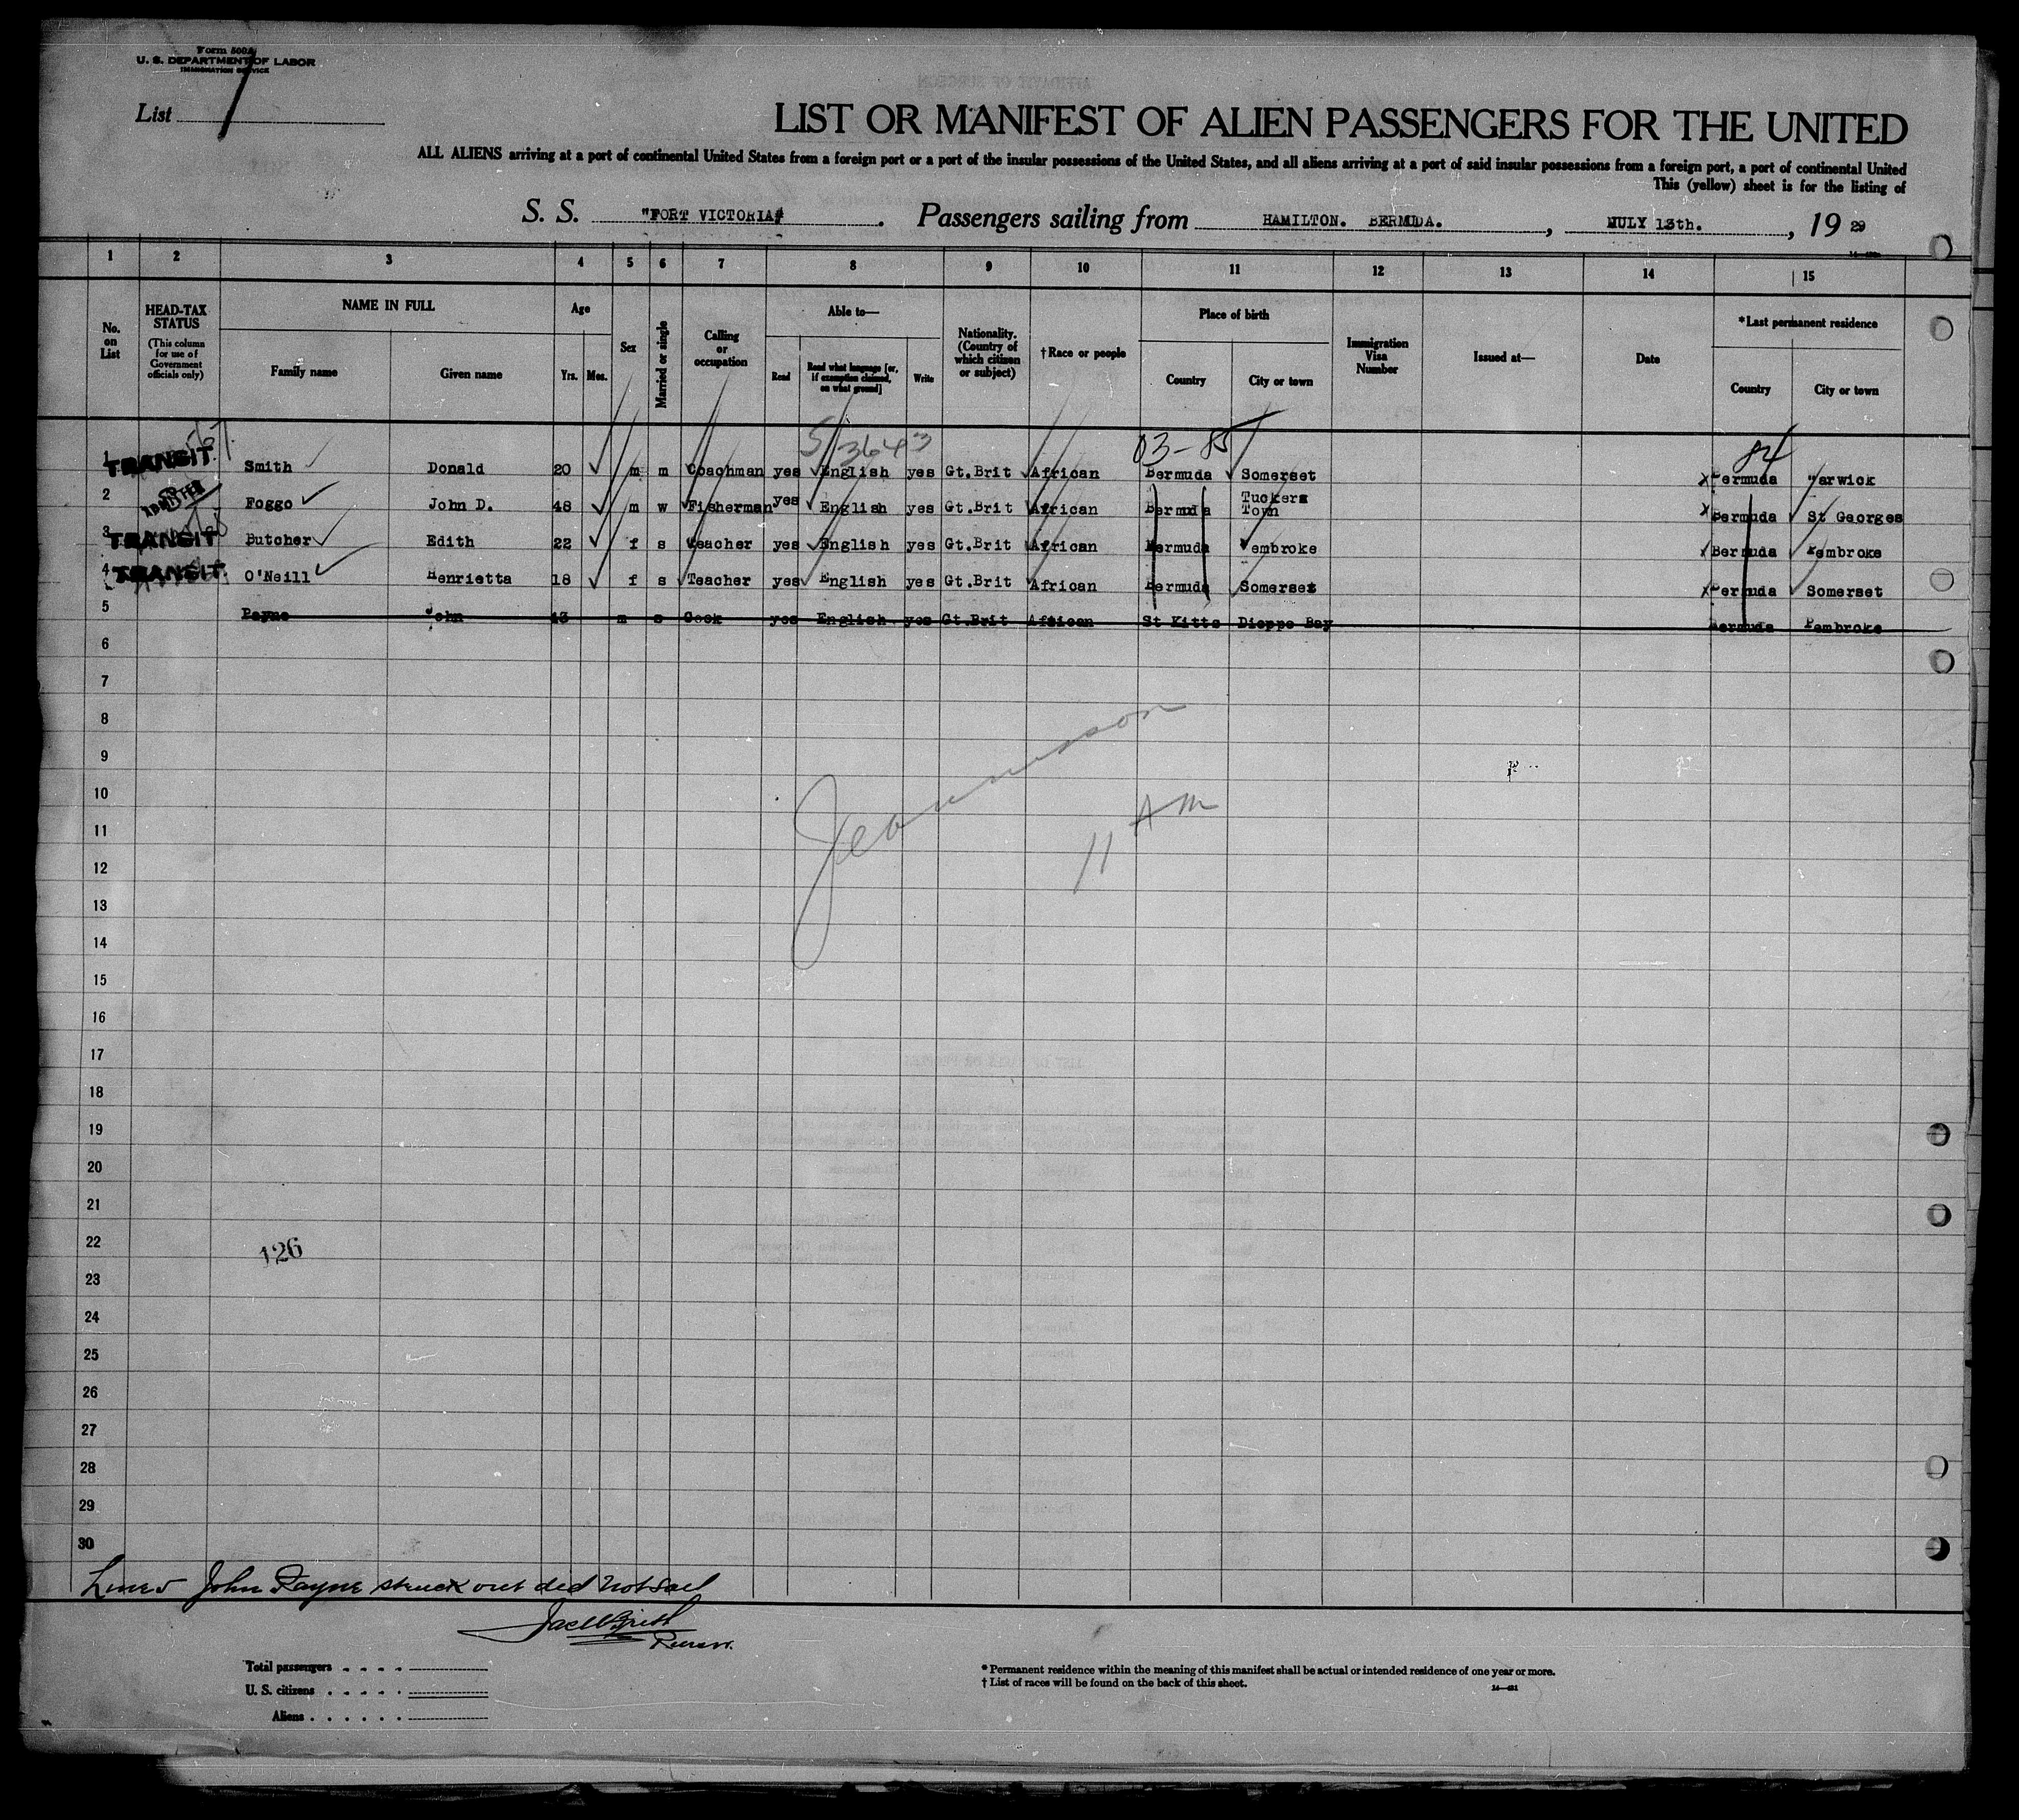 Form 500A
U. S. DEPARTMENT OF LABOR
IMMIGRATION SERVICE
List
LIST OR MANIFEST OF ALIEN PASSENGERS FOR THE UNITED
ALL ALIENS arriving at a port of continental United States from a foreign port or a port of the insular possessions of the United States, and all aliens arriving at a port of said insular possessions from a foreign port, a port of continental United
This (yellow) sheet is for the listing of
S. S. "FORT VICTORIA" . Passengers sailing from HAMILTON. BERMUDA. , JULY 13th. , 19 29
1 2 3 4 5 6 7 8 9 10 11 12 13 14 15
No. on List
HEAD-TAX STATUS (This column for use of Government officials only)
NAME IN FULL
Family name Given name
Age
Yrs. Mos.
Sex
Married or single
Calling or occupation
Able to—
Read
Read what language [or, if exemption claimed, on what ground]
Write
Nationality. (Country of which citizen or subject)
†Race or people
Place of birth
Country City or town
Immigration Visa Number
Issued at—
Date
*Last permanent residence
Country City or town
5/3643 03-85 84
1 TRANSIT Smith Donald 20 m m Coachman yes English yes Gt.Brit African Bermuda Somerset Bermuda Warwick
2 ADMITTED Foggo John D. 48 m w Fisherman yes English yes Gt.Brit African Bermuda Tuckers Town Bermuda St Georges
3 TRANSIT Butcher Edith 22 f s Teacher yes English yes Gt.Brit African Bermuda Pembroke Bermuda Pembroke
4 TRANSIT O'Neill Henrietta 18 f s Teacher yes English yes Gt.Brit African Bermuda Somerset Bermuda Somerset
5 Payne John 43 m s Cook yes English yes Gt.Brit African St Kitts Dieppe Bay Bermuda Pembroke
6
7
8
9
10
11
12
13
14
15
16
17
18
19
20
21
22
23
24
25
26
27
28
29
30
11 AM
126
Line 5 John Payne struck out did not sail
Purser.
Total passengers
U. S. citizens
Aliens
* Permanent residence within the meaning of this manifest shall be actual or intended residence of one year or more.
† List of races will be found on the back of this sheet.
14—431